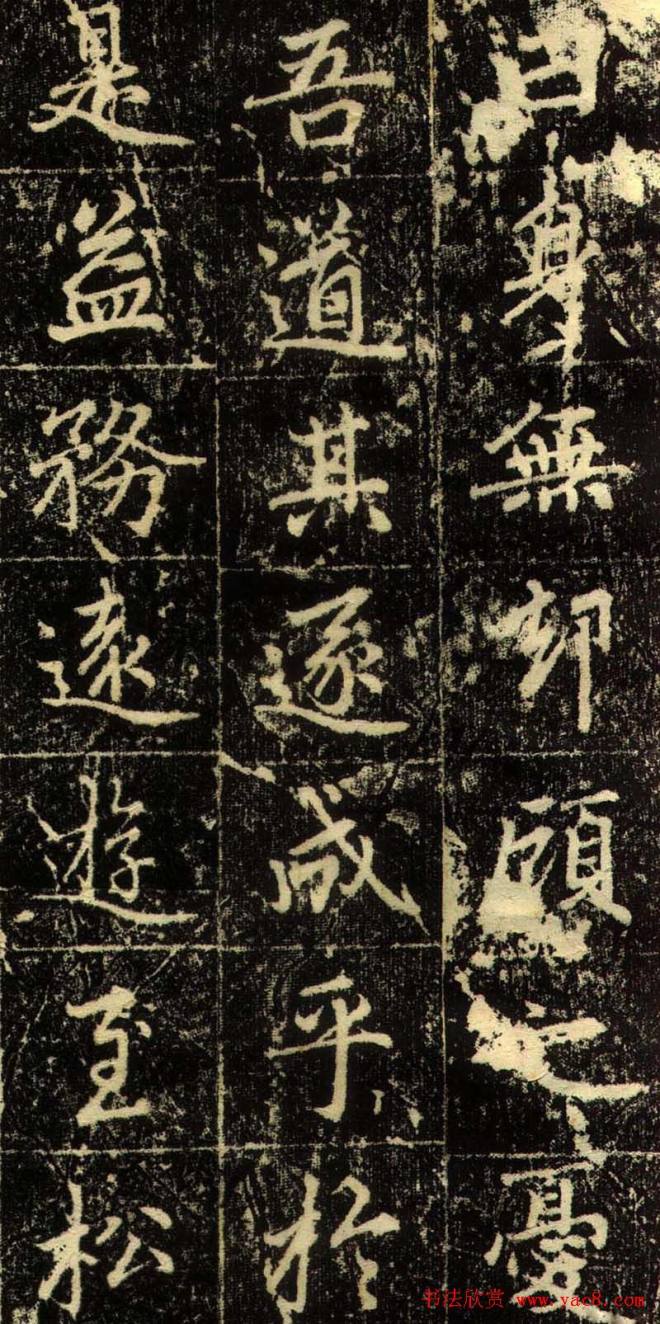 曰身無却顧之憂
吾道其遂成乎於
是益務遠遊至松
书法欣赏 www.yac8.com